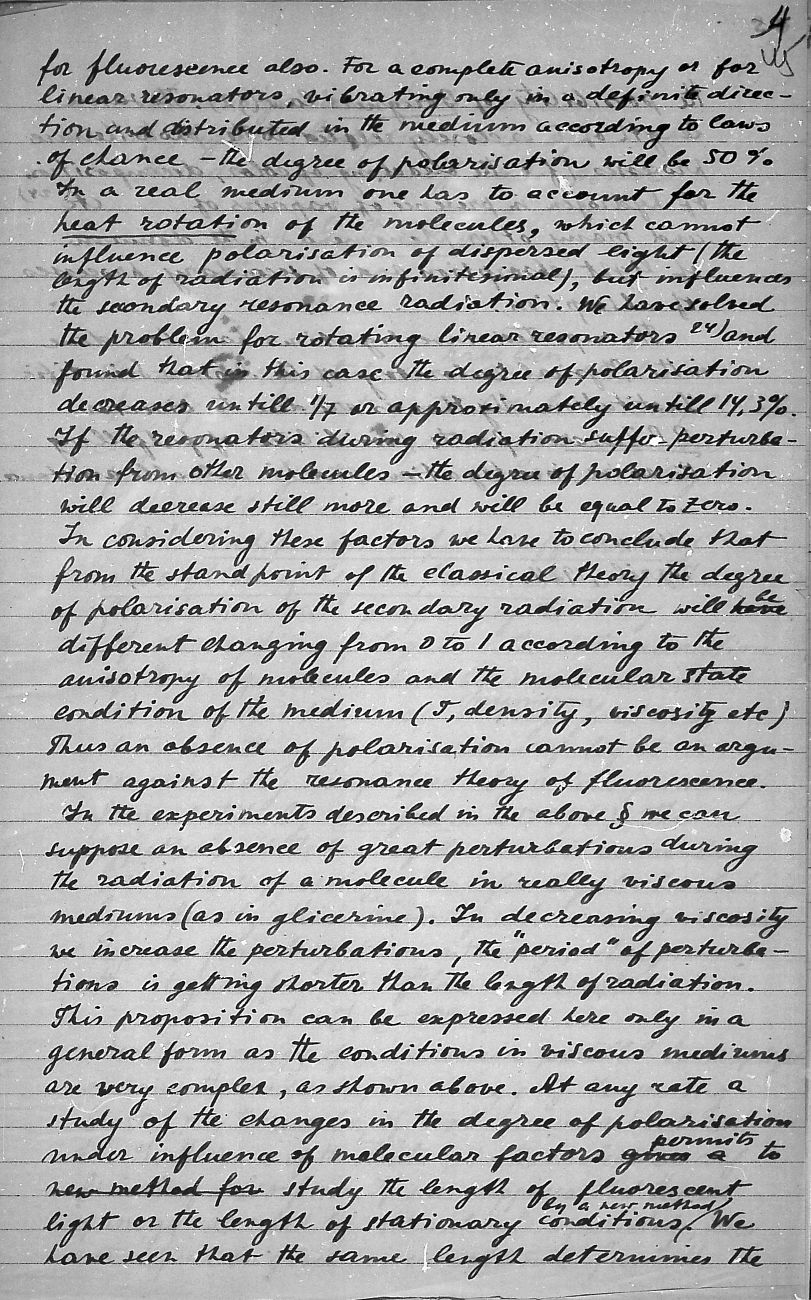 4
for fluorescence also. For a complete anisotropy or for
linear resonators, vibrating only in a definite direc-
tion and distributed in the medium according to laws
of chance – the degree of polarisation will be 50%
In a real medium one has to account for the
heat rotation of the molecules, which cannot
influence polarisation of dispersed light (the
length of radiation is infinitesimal), but influences
the secondary resonance radiation. We have solved
the problem for rotating linear resonators 24) and
found that in this case the degree of polarisation
decreases untill 1/7 or approximately untill 14,3%.
If the resonators during radiation suffer perturba-
tion from other molecules – the degree of polarisation
will decrease still more and will be equal to zero.
In considering these factors we have to conclude that
from the standpoint of the classical theory the degree
of polarisation of the secondary radiation will have be
different changing from 0 to 1 according to the
anisotropy of molecules and the molecular state
condition of the medium (T, density, viscosity etc)
Thus an absence of polarisation cannot be an argu-
ment against the resonance theory of fluorescence.
In the experiments described in the above § we can
suppose an absence of great perturbations during
the radiation of a molecule in really viscous
mediums (as in glicerine). In decreasing viscosity
we increase the perturbations, the "period" of perturba-
tions is getting shorter than the length of radiation.
This proposition can be expressed here only in a
general form as the conditions in viscous mediums
are very complex, as shown above. At any rate a
study of the changes in the degree of polarisation
under influence of molecular factors gives a permits to
new method for study the length of fluorescent
light or the length of stationary conditions by a new method. We
have seen that the same length determines the